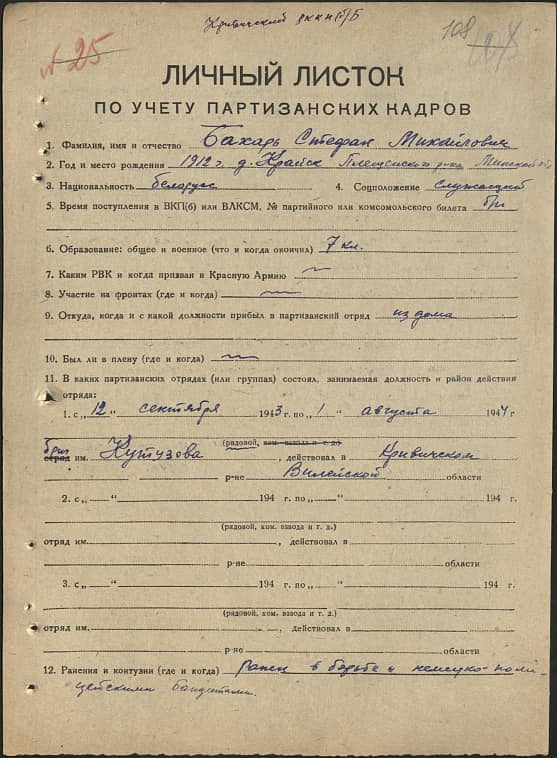 Кривичский РККП(б)Б
№ 25
108
ЛИЧНЫЙ ЛИСТОК
ПО УЧЕТУ ПАРТИЗАНСКИХ КАДРОВ
1. Фамилия, имя и отчество Бахарь Стефан Михайлович
2. Год и место рождения 1912 г. д. Крайск Плещенского р-на Минской обл
3. Национальность белорус 4. Соцположение служащий
5. Время поступления в ВКП(б) или ВЛКСМ, № партийного или комсомольского билета б/п
6. Образование: общее и военное (что и когда окончил) 7 кл.
7. Каким РВК и когда призван в Красную Армию —
8. Участие на фронтах (где и когда) —
9. Откуда, когда и с какой должности прибыл в партизанский отряд из дома
10. Был ли в плену (где и когда) —
11. В каких партизанских отрядах (или группах) состоял, занимаемая должность и район действия
отряда:
1. с „12 " сентября 1943 г. по „1 " августа 1944 г
(рядовой, ком. взвода и т. д.)
бриг
отряд им. Кутузова, действовал в Кривичском
р-не Вилейской области
2. с „ " 194 г. по „ " 194 г.
(рядовой, ком. взвода и т. д.)
отряд им. , действовал в
р-не области
3. с „ " 194 г. по „ " 194 г.
(рядовой, ком. взвода и т. д.)
отряд им. , действовал в
р-не области
12. Ранения и контузии (где и когда) ранен в борьбе с немецко-поли-
цейскими бандитами.